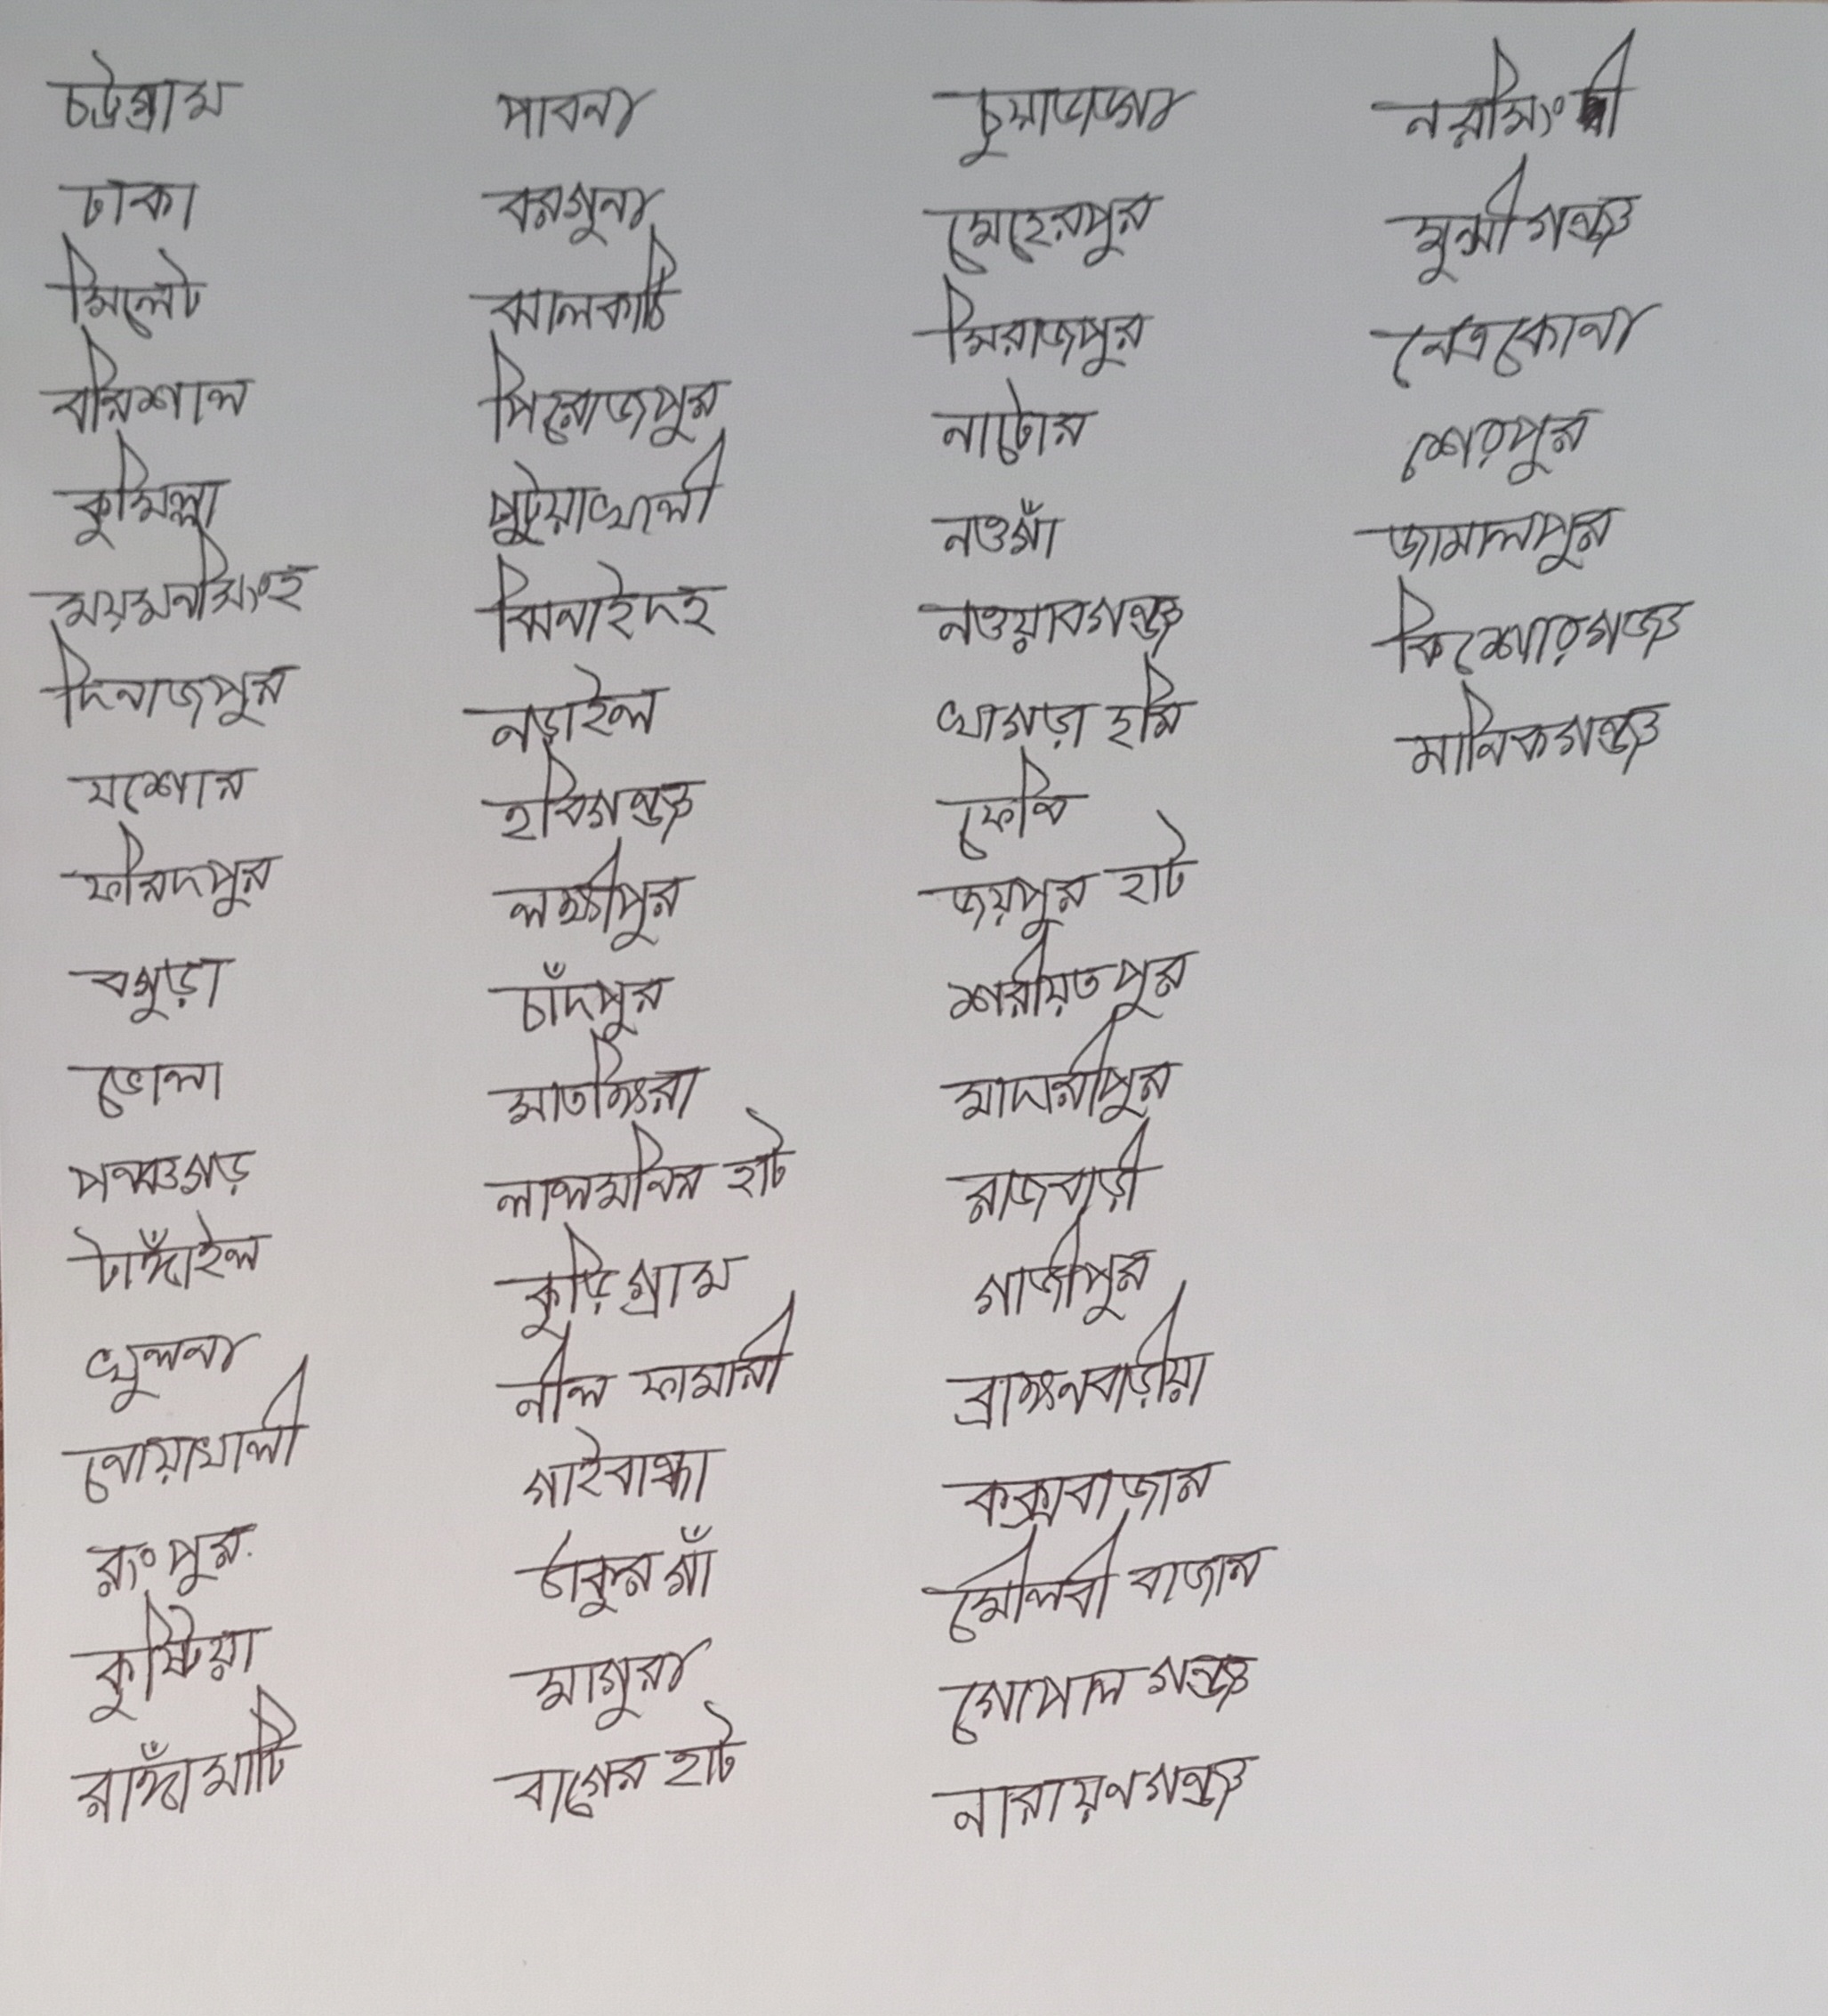 চট্টগ্রাম
ঢাকা
সিলেট
বরিশাল
কুমিল্লা
ময়মনসিংহ
দিনাজপুর
যশোর
ফরিদপুর
বগুড়া
ভোলা
পনঞ্চগড়
টাঙ্গাঁইল
খুলনা
নোয়াখালী
রংপুর
কুষ্টিয়া
রাঙ্গাঁমাটি
পাবনা
বরগুনা
ঝালকাঠি
পিরোজপুর
পুটুয়াখালী
ঝিনাইদহ
নড়াইল
হবিগঞ্জ
লক্ষীপুর
চাঁদপুর
সাতক্ষিরা
লালমনির হাট
কুড়িগ্রাম
নীল ফামারী
গাইবান্ধা
ঠাকুরগাঁ
মাগুরা
বাগের হাট
চুয়াডাঙ্গা
মেহেরপুর
সিরাজপুর
নাটোর
নওগাঁ
নওয়াবগঞ্জ
খাগড়া ছরি
ফেনি
জয়পুর হাট
শরীয়তপুর
মাদারীপুর
রাজবাড়ী
গাজীপুর
ব্রাহ্মনবাড়ীয়া
কক্সবাজার
মৌলবী বাজার
গোপাল গঞ্জ
নারায়নগঞ্জ
নরসিংদী
মুন্সীগঞ্জ
নেত্রকোনা
শেরপুর
জামালপুর
কিশোরগঞ্জ
মানিকগঞ্জ